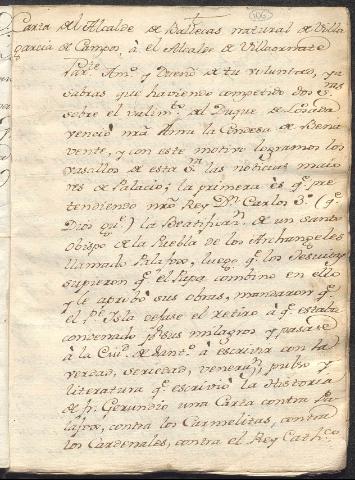 106
Carta del Alcalde de Ballecas natural de Villa
garcia de Campos, à el Alcalde de Villaornate
Par.te Am.o y Dueño de tu voluntad, ya
sabras que haviendo competido dos S.ras
sobre el valim.to del Duque de Losada
venciò nra Ama la Condesa de Bena
vente, y con este motivo logramos los
vasallos de esta S.ra las noticias maio
res de Palacio; la primera es q.e pre
tendiendo nrõ Rey D.n Carlos 3.o (q.e
Dios gu.e) la Beatificaz.n de un santo
obispo de la Puebla de los Archangeles
llamado Palafox, luego q.e los Jesuitas
supieron q.e el Papa combino en ello
y le aprobò sus obras, mandaron q.e
el P.e Isla dejase el retiro à q.e estaba
condenado p.r sus milagros y pasase
à la Ciu.d de Sant.o à escrivir con la
verdad, seriedad, veneraz.n, pulso y
literatura q.e escriviò la Historia
de fr. Gerundio una Carta contra Pa
lafox, contra los Carmelitas, contra
los Cardenales, contra el Rey Cath.co